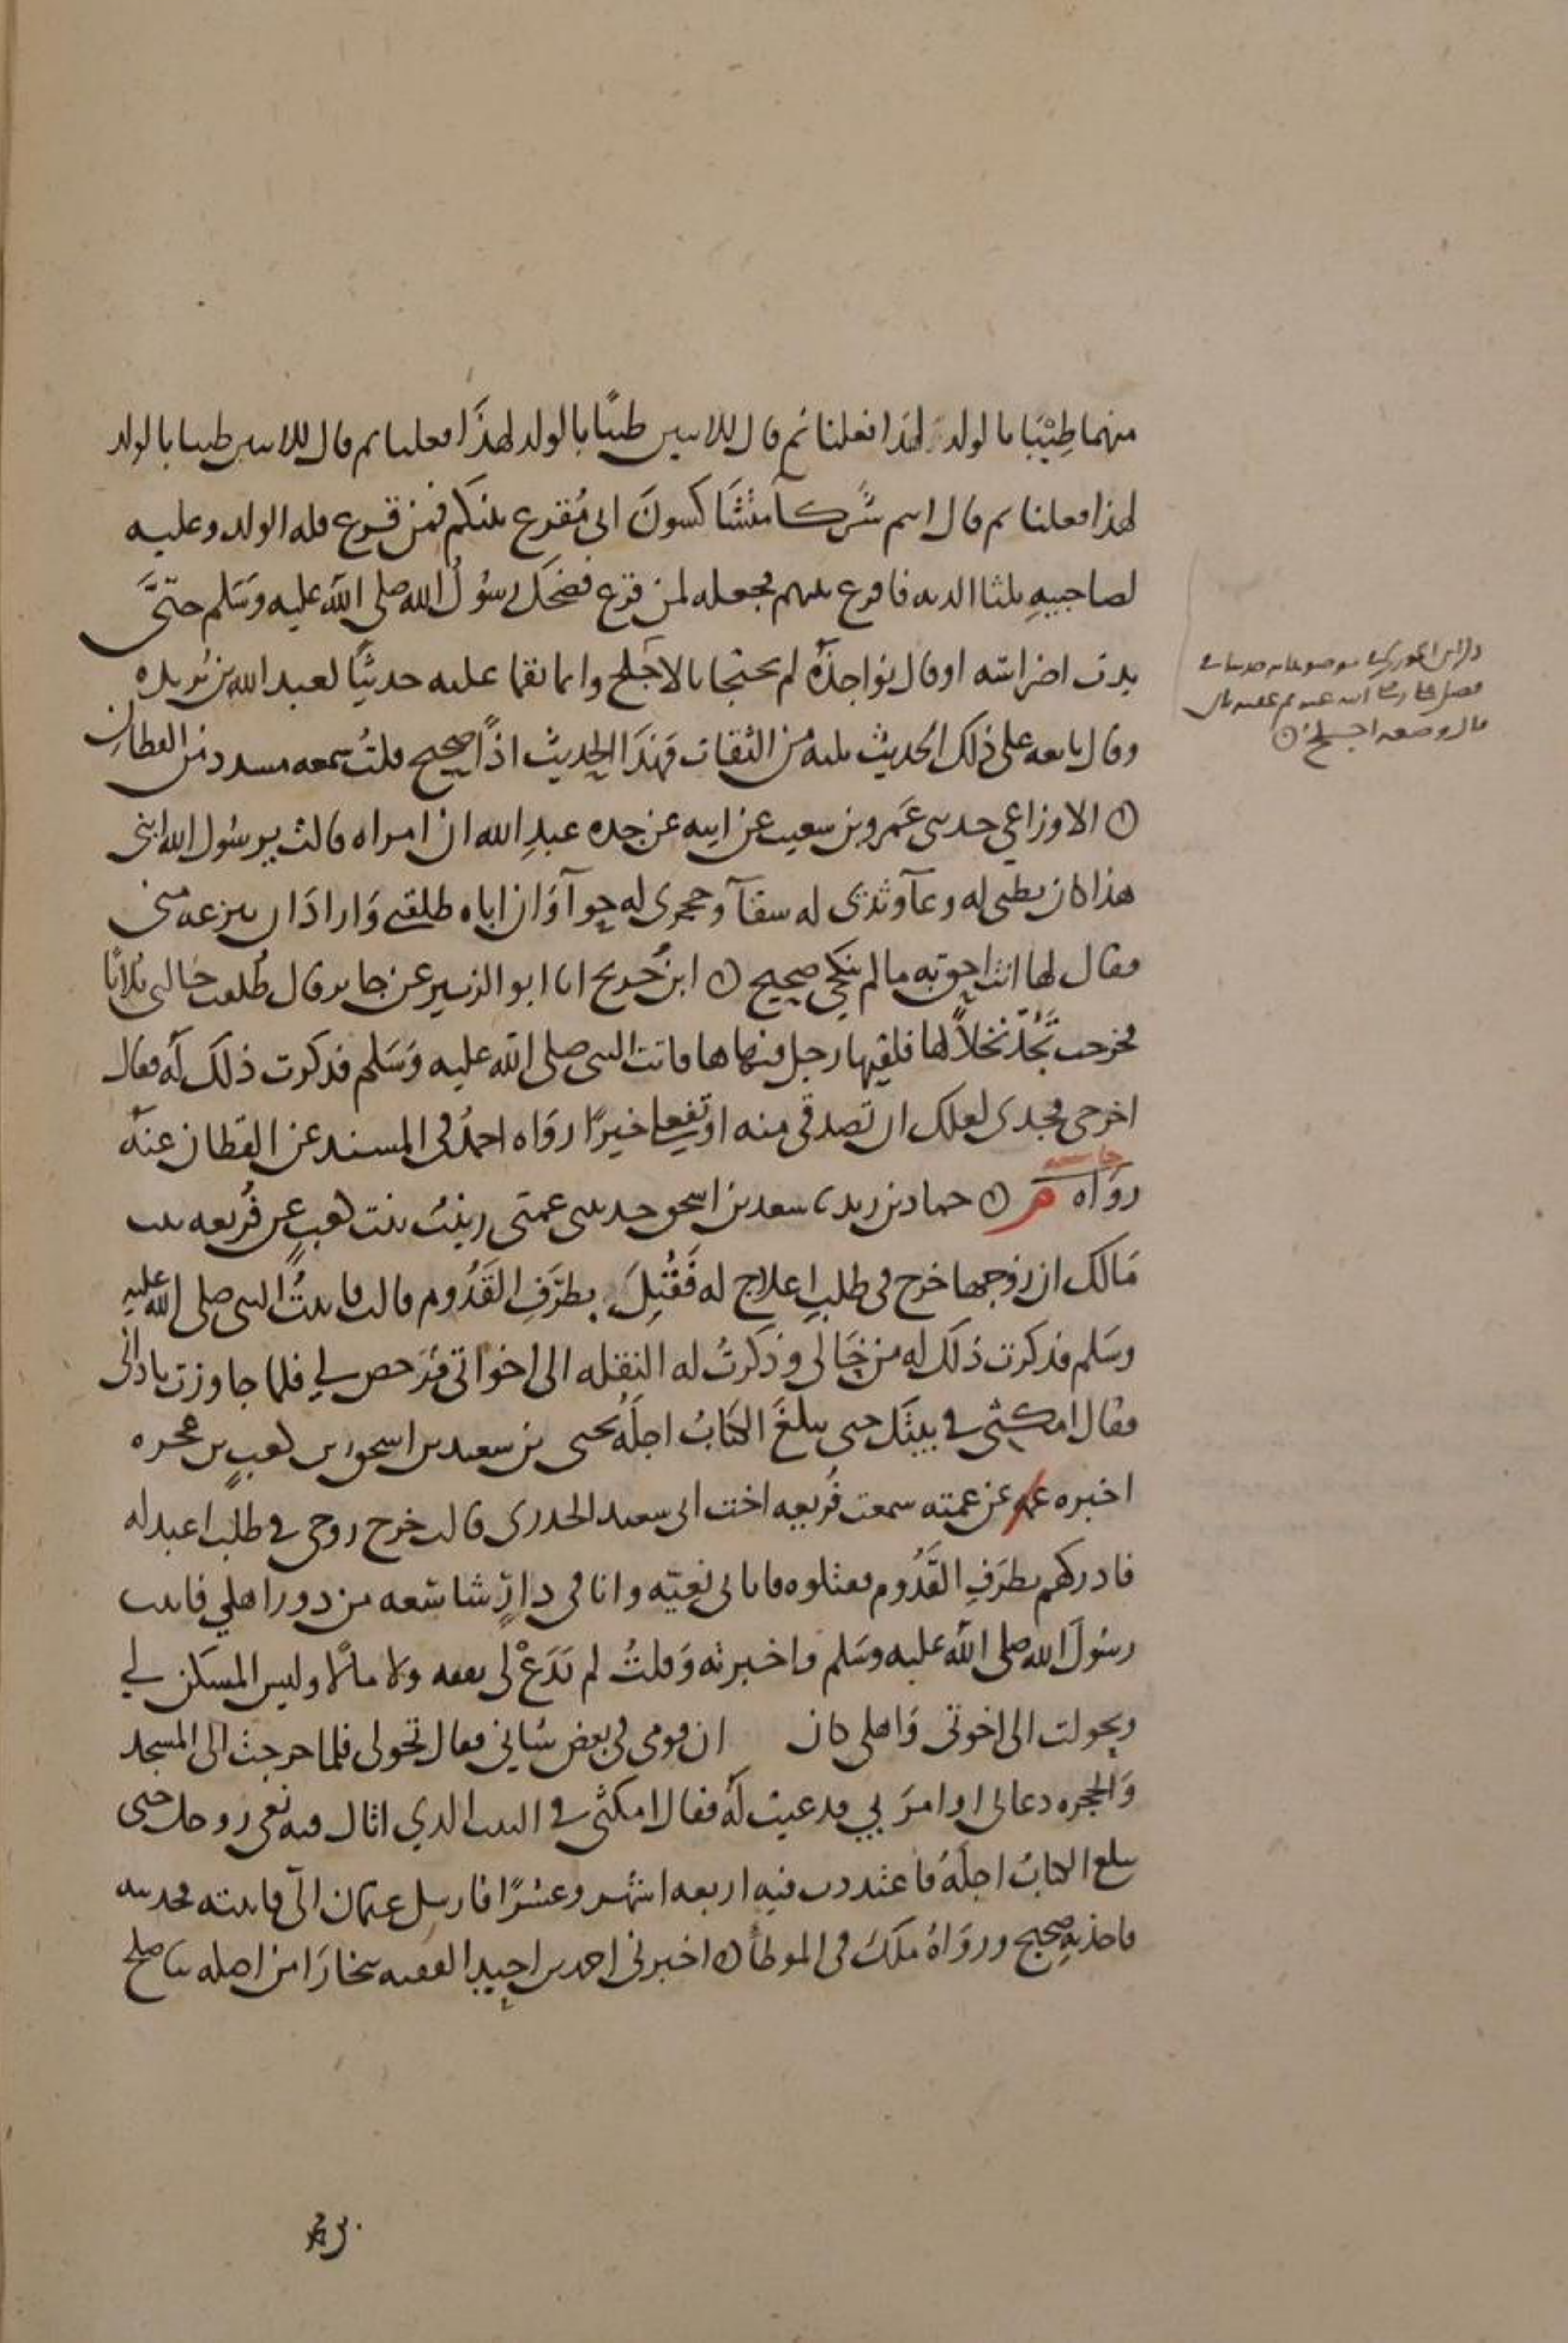 منهما طِيْبَا بالولد لهذا فعلنا ثم قال للاسين طيبًا بالولد لهذَا فعلنا ثم قال للاسين طيبا بالولد
لهذا فعلنا ثم قال اسم شركآ متشَاكسونَ انى مُقرع بينكم فمن قرع فله الولد وعليه
لصاحبيهِ ثلثا الديه فاقرع بينهم فجعله لمن قرع فضحك رسُولُ الله صلى الله عليه وسَلم حتّىَ
بدت اضراسه او قال نواجذهُ لم يحتجا بالاجلح وانما نقما عليه حديثًا لعبد الله بن بُريده
وقال تابعه على ذلك الحديث ثلثه من الثقات فهذَا الحديث اذًا صحيح قلتُ سمعه مسدد من القطان
الاوزاعي حدثنى عَمرو بن سعيب عن ابيه عن جده عبدِ الله ان امراه قالت يرسُول الله ابنى
هذا كان بطنى له وعآ وثدى له سقآ وحجرى له حوآ وَان اباه طلقنى وَاراد َان ينزعه منى
فقال لها انت احق به مالم تنكحى صحيح ابن جُريج انا ابو الزبير عن جابر قال طُلقت خالتى ثلاثًا
فخرجت تَجُدّ نخلاً لها فلقيها رجل فنهاها فاتت النبى صلى الله عليه وَسَلم فذكرت ذلك لهُ فقال
اخرجى فجدى لعلك ان تصدقى منه او تفعلى خيرًا روَاه احمدُ فى المسند عن القطان عنهُ
روَاه م حماد بن زيد، سعد بن اسحق حدثتنى عمتى زينبُ بنت كعبٍ عن فُريعه بنت
مَالك ان زوجها خرج فى طلبِ اعلاج له فَقُتِلَ بطرَفِ القَدُوم قالت فاتيتُ النبى صلى الله عليه
وسَلم فذكرت ذلك له من حَالى وذكرتُ له النقله الى اخواتى فرَخص لي فلما جاوزت نادانى
فقال امكثى فى بيتك حتى يبلغَ الكتابُ اجلَهُ يحيى بن سعيد بن اسحق بن كعبٍ بن عجره
اخبره عن عمته سمعت فُريعه اخت ابى سعيد الخدرى قالت خرج زوجى فى طلب اعبد له
فادركهم بطرَفِ القَدُوم فقتلوه فاتانى نعيّه وانا فى دارٍ شاسعه من دور اهلي فاتيت
رسُولَ الله صلى الله عليه وسَلم فاخبرته وَقلتُ لم يَدَعْ لى نفقه ولا مالًا وليس المسكن لي
وتحولت الى اخوتى وَاهلى كان ان قومى فى بعض شانى فقال تحولى فلما خرجت الى المسجد
وَالحجره دعانى او امرَ بى فدعيت لهُ فقال امكثى فى البيت الذي اتاك فيه نعى زوجك حتى
يبلغ الكتابُ اجلَهُ فاعتددت فيهِ اربعه اشهر وعشرًا فارسل عثمان الىّ فاتيته فحدثته
فاخذ بهِ صحيح وروَاهُ ملكٌ فى الموطأ اخبرنى احمد بن احيد الفقيه ببخارَا من اصله ثنا صلح